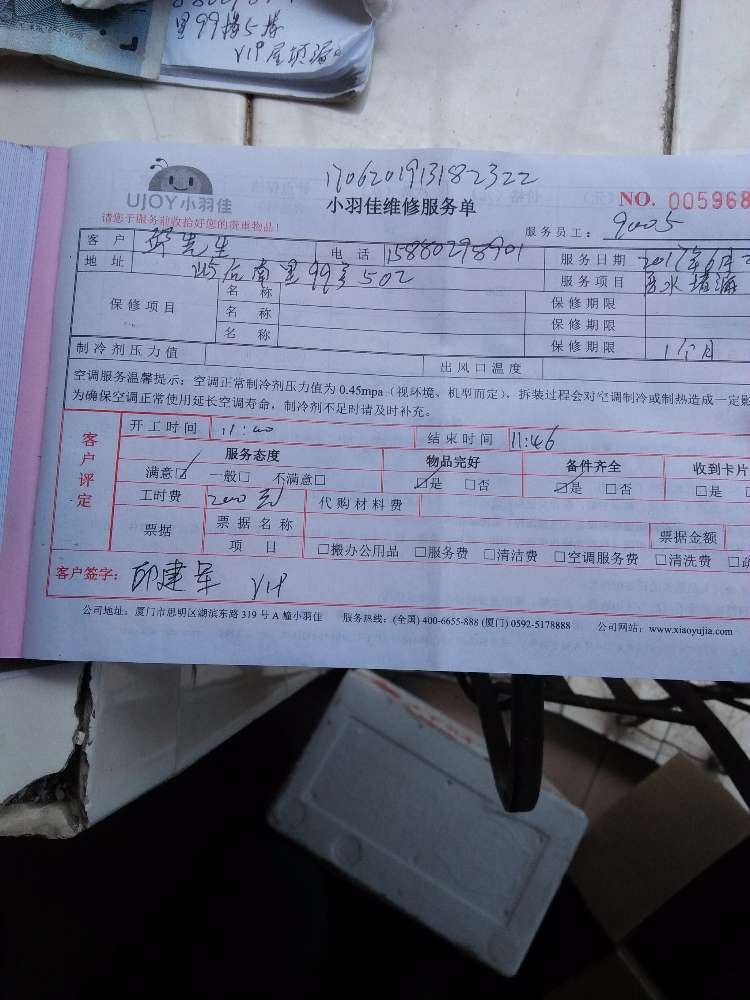 里99搂5搂
VIP屋顶漏。
1706201913182322
UJOY小羽佳
小羽佳维修服务单
NO. 005968
请您于服务前收拾好您的贵重物品！
服务员工： 9005
客户 先生 电话 15880298901 服务日期 2017年6月
地址 后南里99号502 服务项目 防水堵漏
保修项目 名称 保修期限
名称 保修期限
名称 保修期限 1个月
制冷剂压力值 出风口温度
空调服务温馨提示：空调正常制冷剂压力值为 0.45mpa（视环境、机型而定），拆装过程会对空调制冷或制热造成一定影
为确保空调正常使用延长空调寿命，制冷剂不足时请及时补充。
客户评定
开工时间 11:40 结束时间 11:46
服务态度 物品完好 备件齐全 收到卡片
满意☑ 一般□ 不满意□ ☑是 □否 ☑是 □否 □是 □
工时费 代购材料费
票据 票据名称 票据金额
项目 □搬办公用品 □服务费 □清洁费 □空调服务费 □清洗费 □疏
客户签字： 邱建军 VIP
公司地址：厦门市思明区湖滨东路 319 号 A 幢小羽佳 服务热线：(全国) 400-6655-888 (厦门) 0592-5178888 公司网站：www.xiaoyujia.com